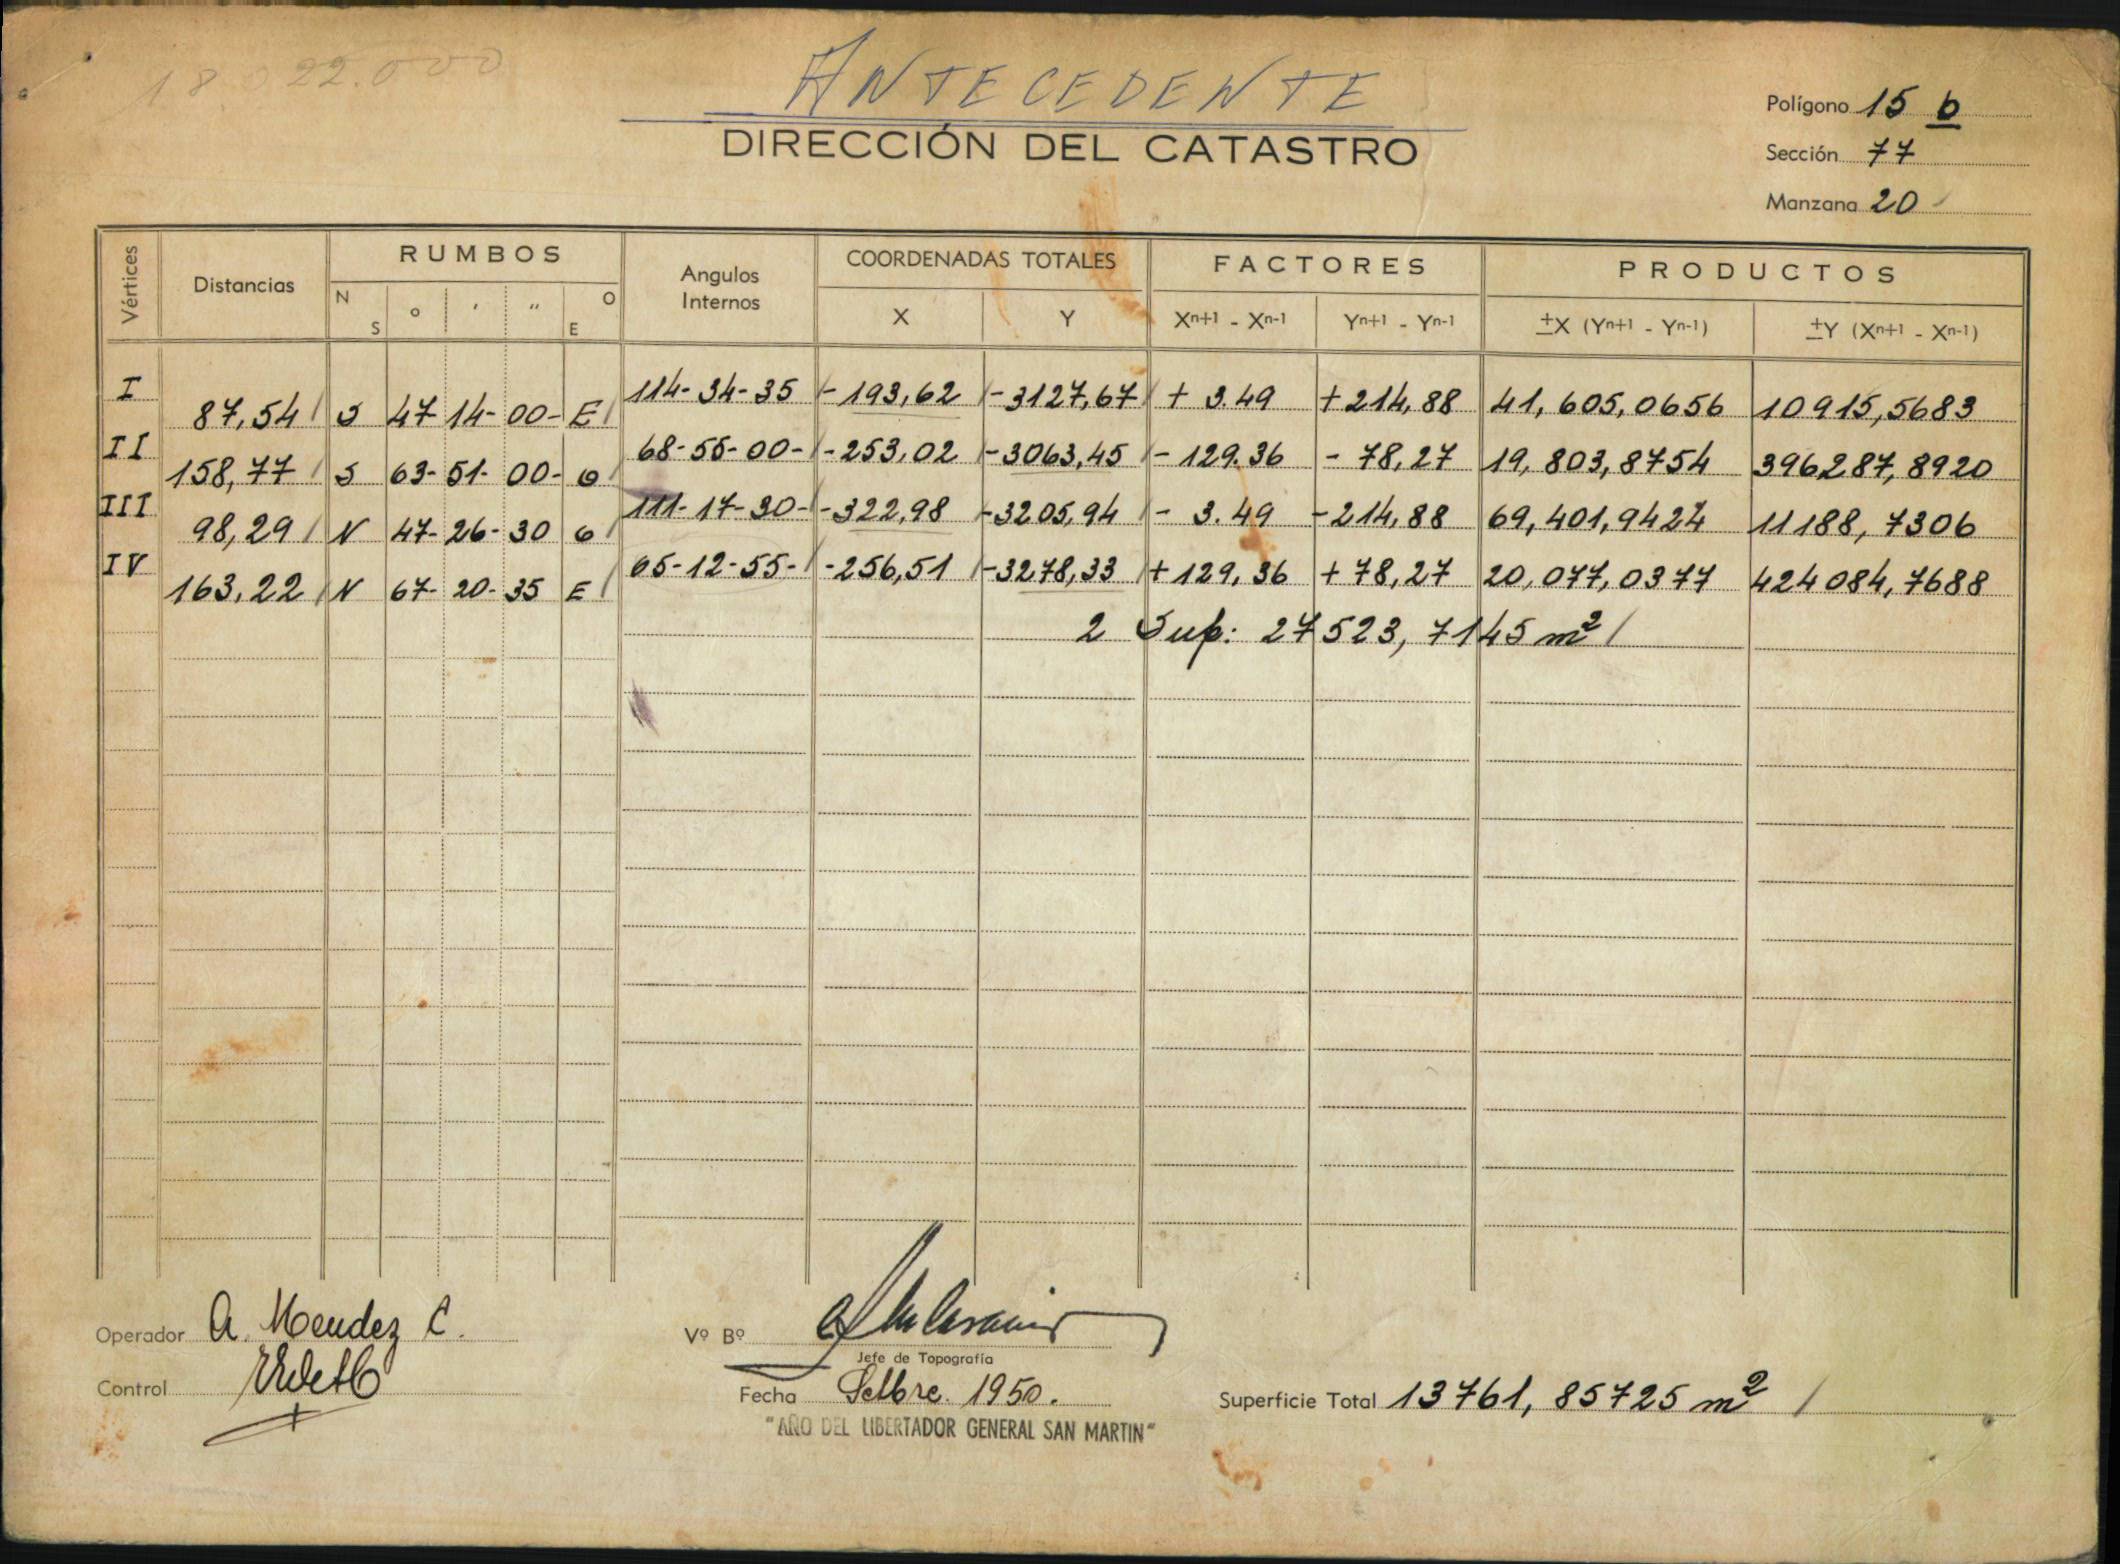 18.022.000
ANTECEDENTE
DIRECCIÓN DEL CATASTRO
Polígono 15 b
Sección 77
Manzana 20
Vértices Distancias RUMBOS Angulos Internos COORDENADAS TOTALES FACTORES PRODUCTOS
N S ° ' " E O X Y Xn+1 - Xn-1 Yn+1 - Yn-1 ±X (Yn+1 - Yn-1) ±Y (Xn+1 - Xn-1)
I 114-34-35 -193,62 -3127,67 + 3.49 +214,88 41,605,0656 10915,5683
87,54 S 47-14-00- E
II 68-55-00- -253,02 -3063,45 - 129.36 - 78,27 19,803,8754 396287,8920
158,77 S 63-51-00- O
III 111-17-30- -322,98 -3205,94 - 3.49 -214,88 69,401,9424 11188,7306
98,29 N 47-26-30 O
IV 65-12-55- -256,51 -3278,33 +129,36 +78,27 20,077,0377 424084,7688
163,22 N 67-20-35 E
2 Sup: 27523,7145 m²
Operador A. Mendez C.
Control
Vº Bº
Jefe de Topografía
Fecha Setbre. 1950.
"AÑO DEL LIBERTADOR GENERAL SAN MARTIN"
Superficie Total 13761,85725 m²